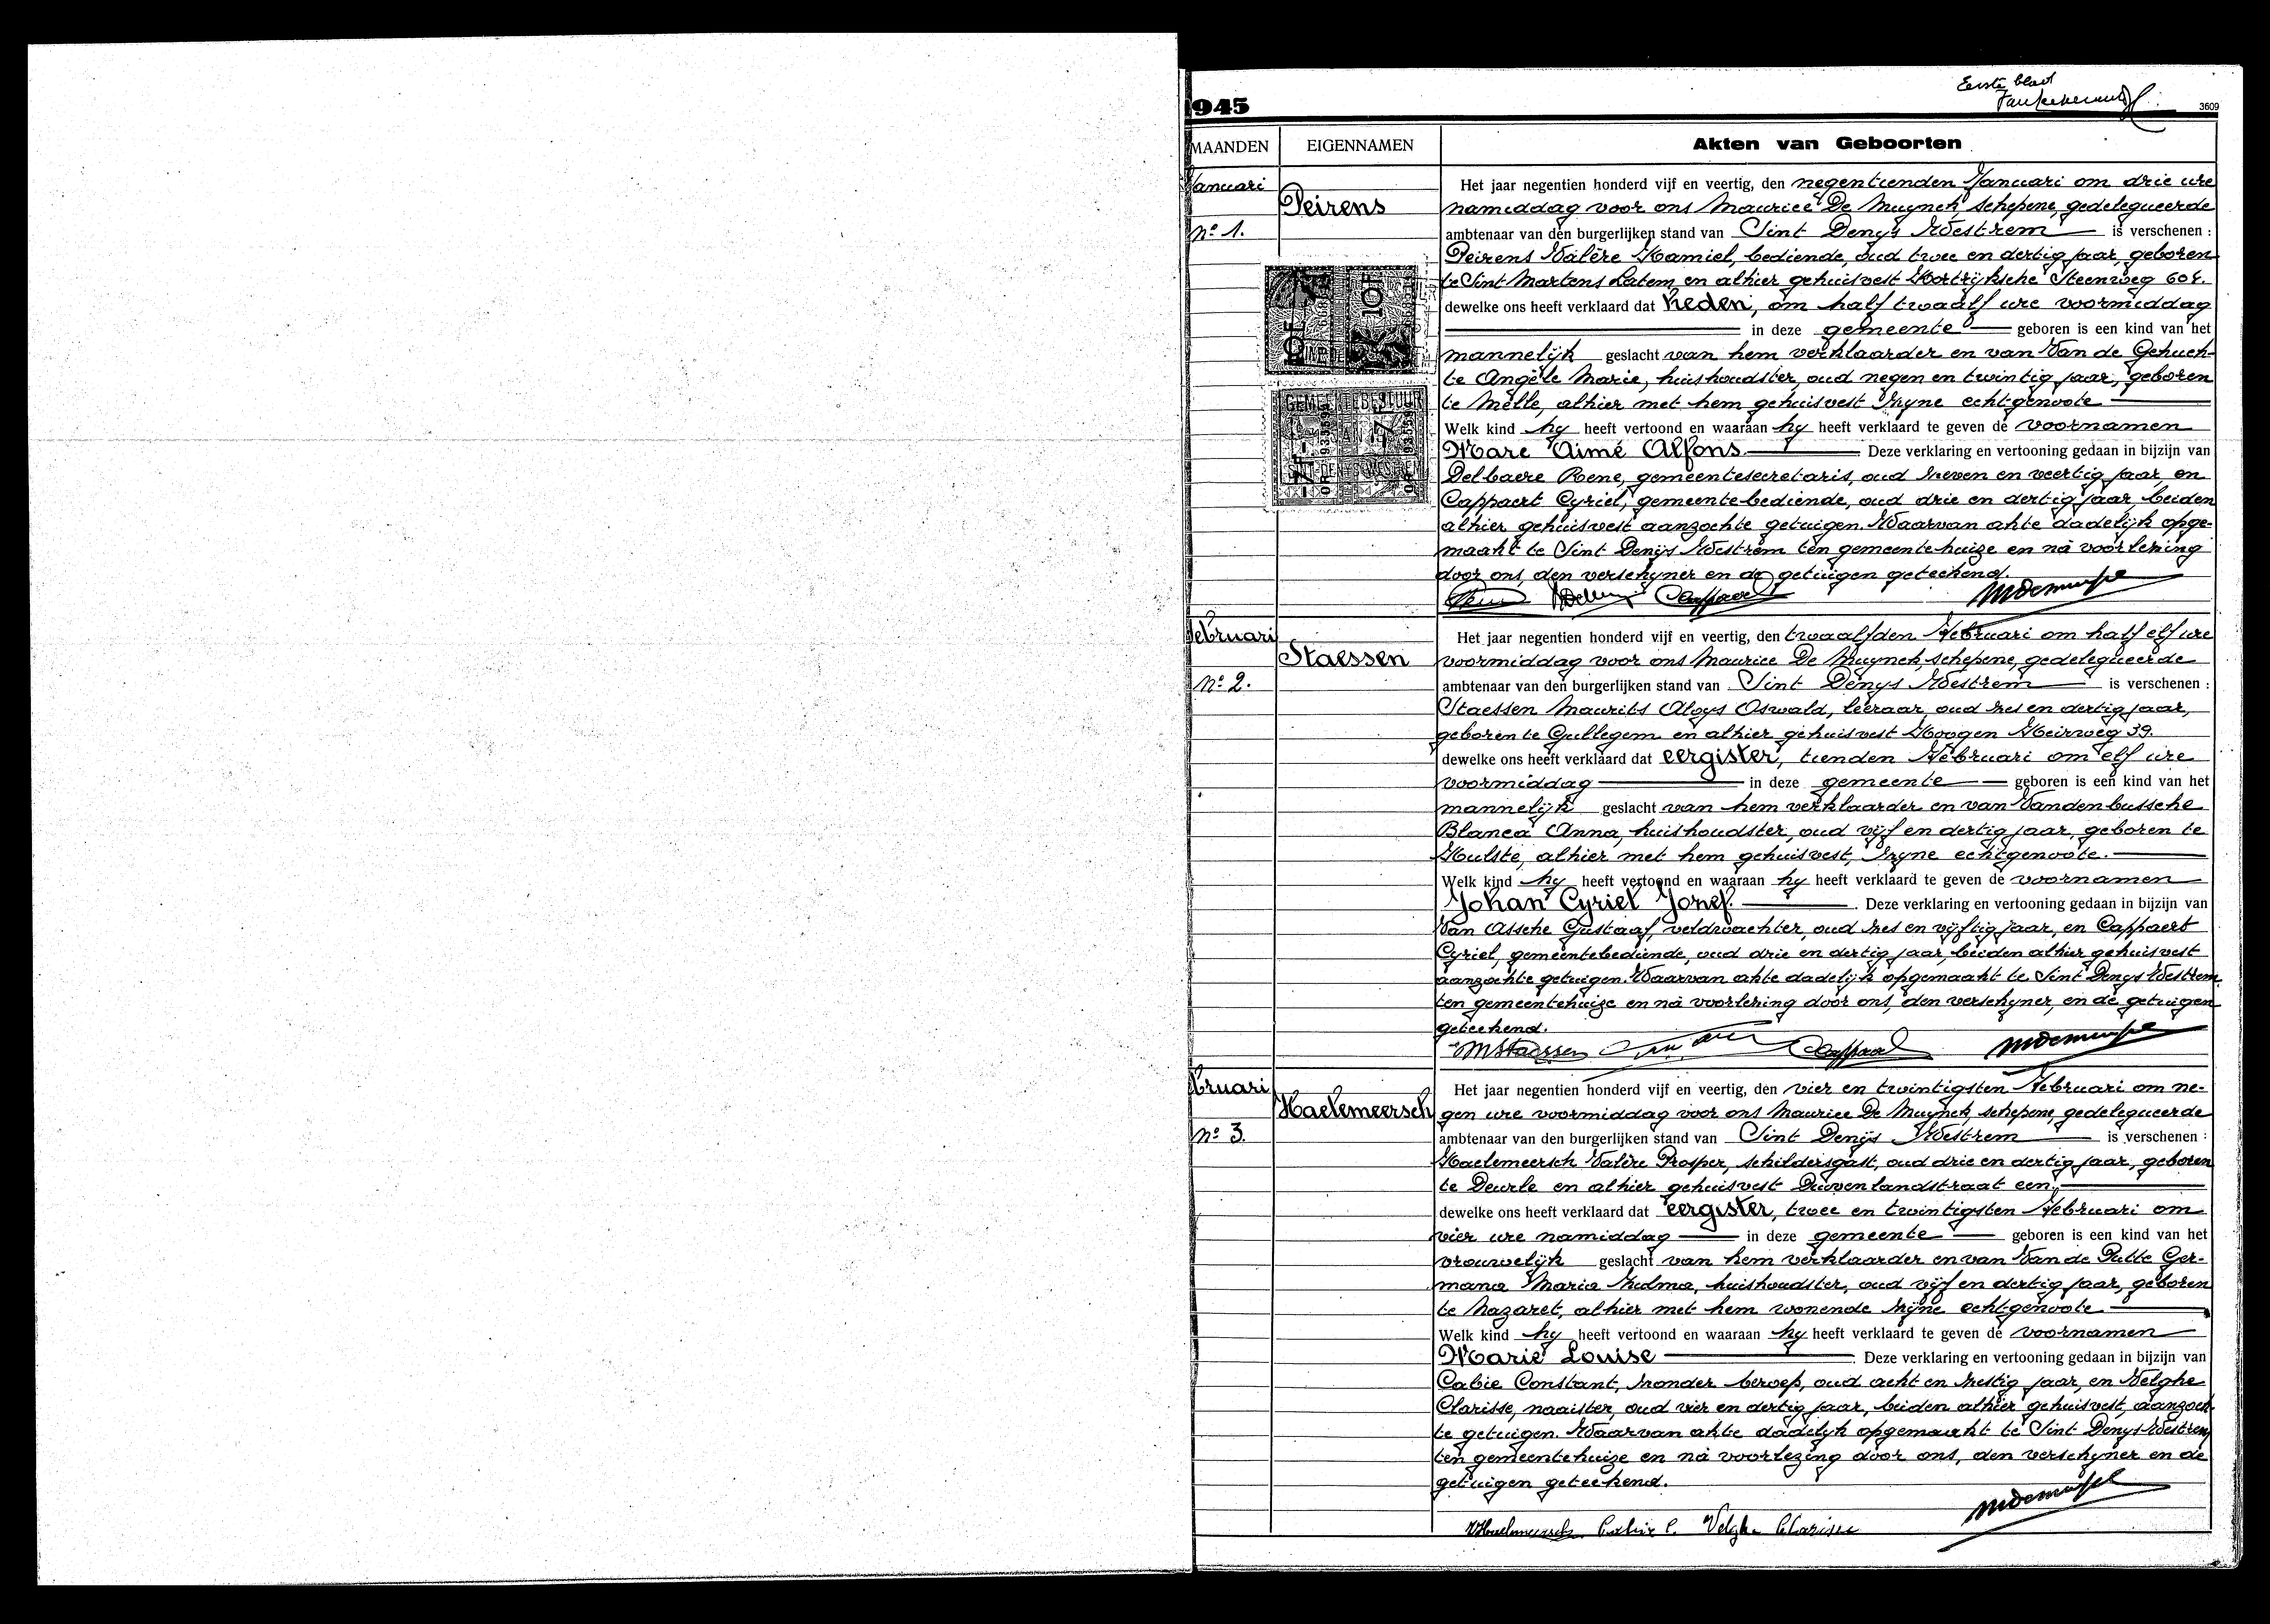 Eerste blad
1945
3609
MAANDEN
EIGENNAMEN
Akten van Geboorten
Januari
Peirens
Nº 1.
Het jaar negentien honderd vijf en veertig, den negentienden Januari om drie ure
namiddag voor ons Maurice De Muynck, schepene, gedelegueerde
ambtenaar van den burgerlijken stand van Sint Denys Westrem is verschenen :
Peirens Valère Kamiel, bediende, oud twee en dertig jaar, geboren
te Sint Martens Latem en alhier gehuisvest Kortrijksche Steenweg 604.
dewelke ons heeft verklaard dat heden, om half twaalf ure voormiddag
in deze gemeente geboren is een kind van het
mannelijk geslacht van hem verklaarder en van Van de Gehuch-
te Angèle Marie, huishoudster, oud negen en twintig jaar, geboren
te Melle, alhier met hem gehuisvest zyne echtgenoote
Welk kind hy heeft vertoond en waaraan hy heeft verklaard te geven de voornamen
Marc Aimé Alfons Deze verklaring en vertooning gedaan in bijzijn van
Delbaere Rene, gemeentesecretaris, oud zeven en veertig jaar, en
Cappaert Cyriel, gemeentebediende, oud drie en dertig jaar, beiden
alhier gehuisvest aanzochte getuigen. Waarvan akte dadelijk opge-
maakt te Sint Denijs Westrem ten gemeentehuize en nà voorlezing
door ons, den verschyner en de getuigen geteekend.
Cappaert
10F 10F
GEMEENTEBESTUUR
SINT-DENYS-WESTREM
Februari
Staessen
Nº 2.
Het jaar negentien honderd vijf en veertig, den twaalfden Februari om half elf ure
voormiddag voor ons Maurice De Muynck, schepene, gedelegueerde
ambtenaar van den burgerlijken stand van Sint Denys Westrem is verschenen :
Staessen Maurits Aloys Oswald, leeraar, oud zes en dertig jaar,
geboren te Gullegem en alhier gehuisvest Hoogen Heirweg 39.
dewelke ons heeft verklaard dat eergister, tienden Februari om elf ure
voormiddag in deze gemeente geboren is een kind van het
mannelijk geslacht van hem verklaarder en van Vandenbussche
Blanca Anna, huishoudster, oud vijf en dertig jaar, geboren te
Hulste, alhier met hem gehuisvest, zyne echtgenoote.
Welk kind hy heeft vertoond en waaraan hy heeft verklaard te geven de voornamen
Johan Cyriel Jozef. Deze verklaring en vertooning gedaan in bijzijn van
Van Assche Gustaaf, veldwachter, oud zes en vyftig jaar, en Cappaert
Cyriel, gemeentebediende, oud drie en dertig jaar, beiden alhier gehuisvest
aanzochte getuigen. Waarvan akte dadelijk opgemaakt te Sint Denys Westrem
ten gemeentehuize en nà voorlezing door ons, den verschyner, en de getuigen
geteekend.
MStaessen Cappaert
bruari
Haelemeersch
Nº 3.
Het jaar negentien honderd vijf en veertig, den vier en twintigsten Februari om ne-
gen ure voormiddag voor ons Maurice De Muynck, schepene, gedelegueerde
ambtenaar van den burgerlijken stand van Sint Denijs Westrem is verschenen :
Haelemeersch Valère Prosper, schildersgast, oud drie en dertig jaar, geboren
te Deurle en alhier gehuisvest Duivenlandstraat een,
dewelke ons heeft verklaard dat eergister, twee en twintigsten Februari om
vier ure namiddag in deze gemeente geboren is een kind van het
vrouwelijk geslacht van hem verklaarder en van Van de Putte Ger-
mana Maria Zulma, huishoudster, oud vijf en dertig jaar, geboren
te Nazaret, alhier met hem wonende zijne echtgenoote
Welk kind hy heeft vertoond en waaraan hy heeft verklaard te geven de voornamen
Marie Louise Deze verklaring en vertooning gedaan in bijzijn van
Cabie Constant, zonder beroep, oud acht en zestig jaar, en Velghe
Clarisse, naaister, oud vier en dertig jaar, beiden alhier gehuisvest, aanzoch-
te getuigen. Waarvan akte dadelyk opgemaakt te Sint Denys Westrem
ten gemeentehuize en nà voorlezing door ons, den verschyner en de
getuigen geteekend.
VHaelemeersch Cabie C. Velghe Clarisse